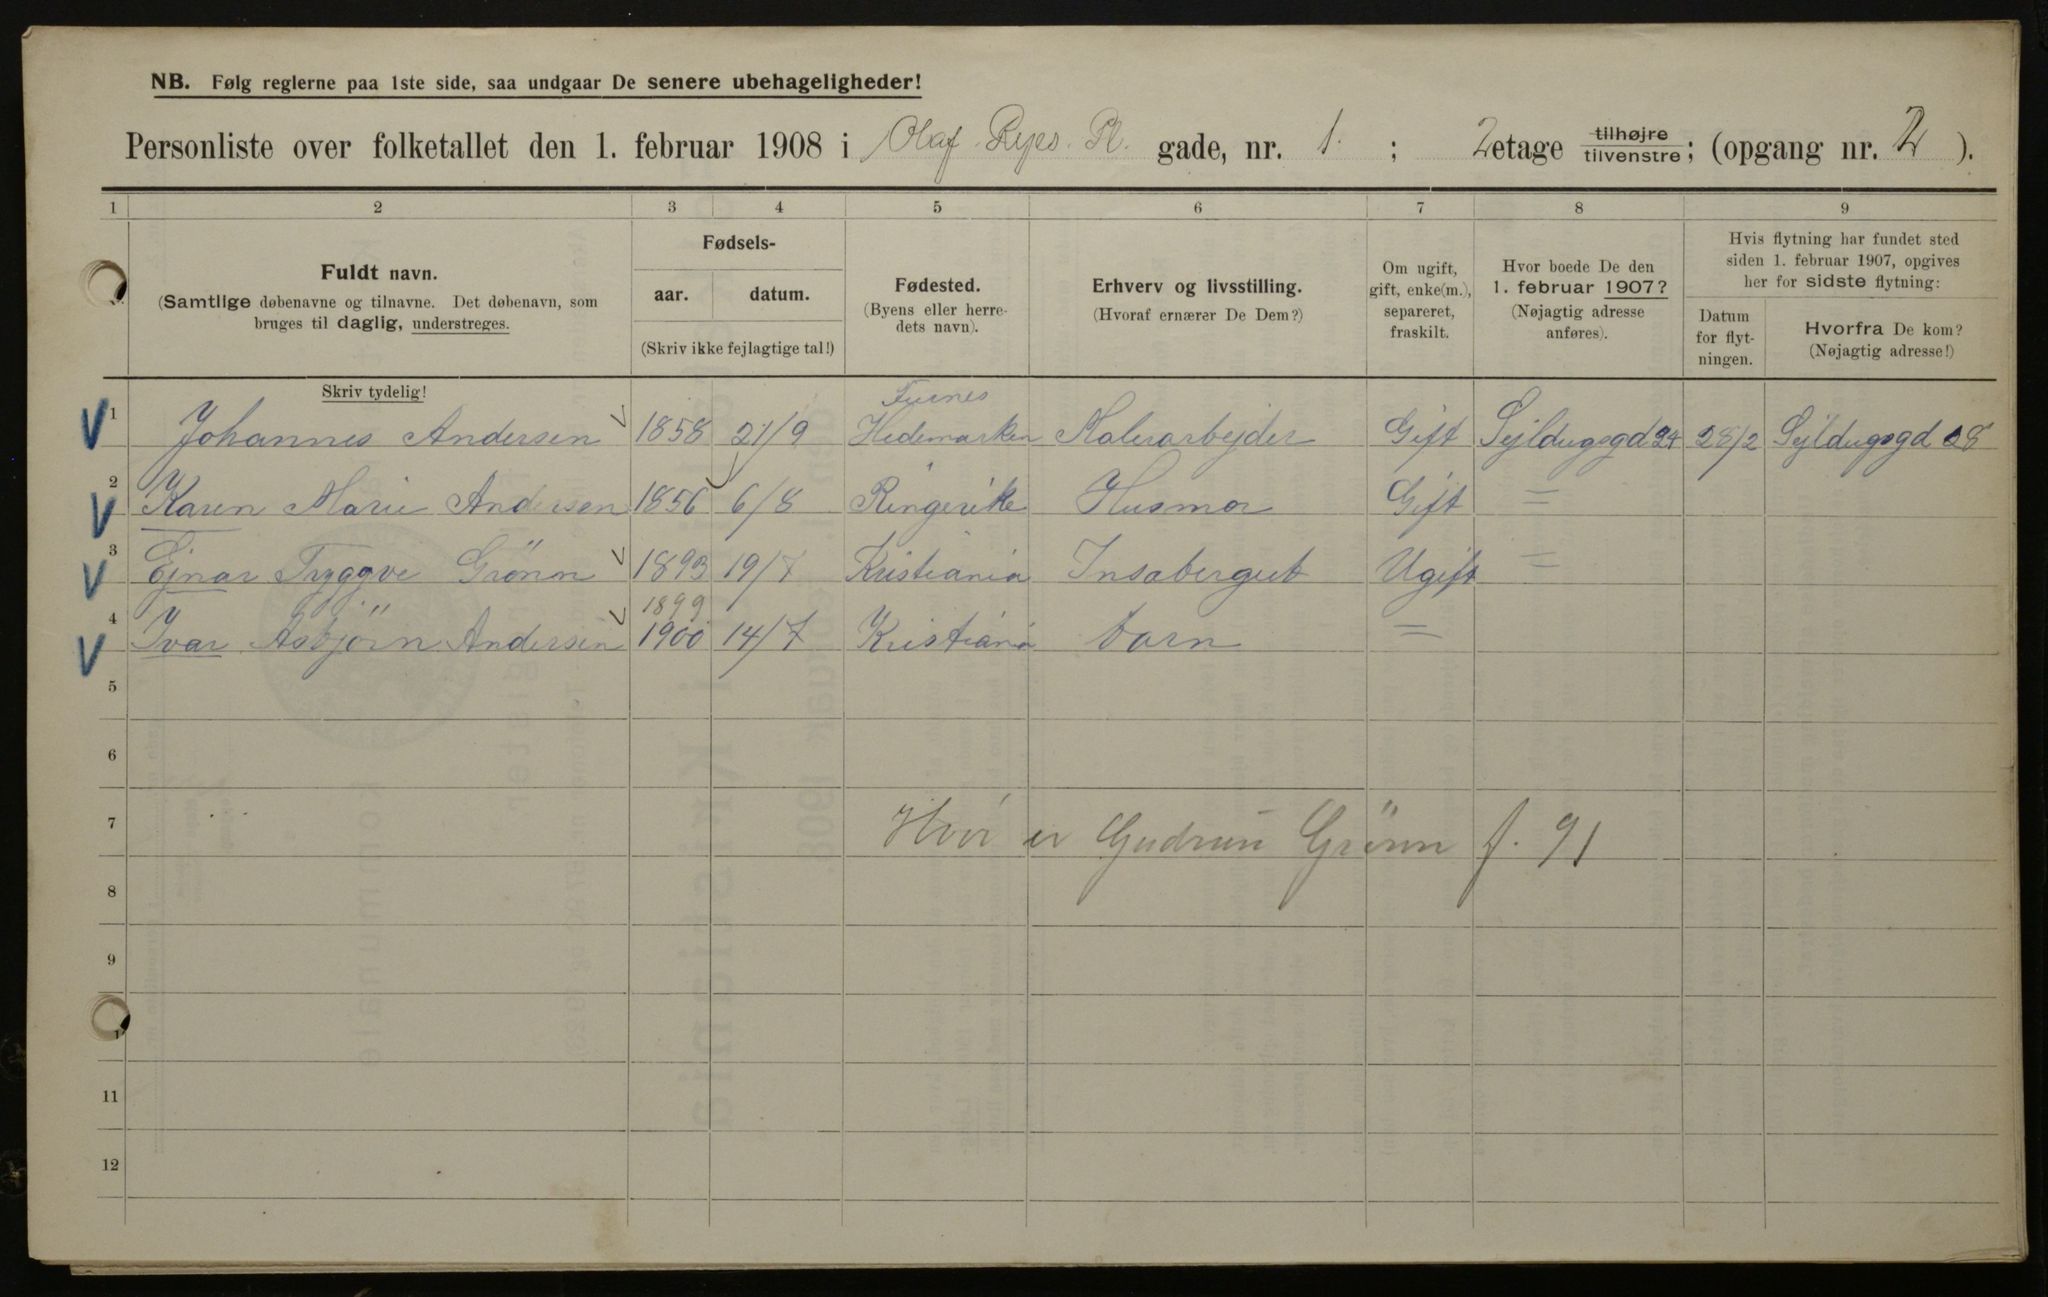 NB. Følg reglerne paa 1ste side, saa undgaar De senere ubehageligheder!
Personliste over folketallet den 1. februar 1908 i Olaf Ryes Pl. gade, nr. 1. ; 2 etage tilhøjre tilvenstre; (opgang nr. 2 ).
1 2 3 4 5 6 7 8 9
Fuldt navn.
(Samtlige døbenavne og tilnavne. Det døbenavn, som
bruges til daglig, understreges.
Skriv tydelig!
Fødsels-
aar. datum.
(Skriv ikke fejlagtige tal!)
Fødested.
(Byens eller herre-
dets navn).
Erhverv og livsstilling.
(Hvoraf ernærer De Dem?)
Om ugift,
gift, enke(m.),
separeret,
fraskilt.
Hvor boede De den
1. februar 1907?
(Nøjagtig adresse
anføres).
Hvis flytning har fundet sted
siden 1. februar 1907, opgives
her for sidste flytning:
Datum
for flyt-
ningen.
Hvorfra De kom?
(Nøjagtig adresse!)
Furnes
1 Johannes Andersen 1858 21/9 Hedemarken Gift Sejldugsgd 24 28/2 Sejldugsgd 28
2 Karen Marie Andersen 1856 6/8 Ringerike Husmor Gift =
3 Ejnar Tryggve Grönn 1893 19/7 Kristiania Ugift =
1899
4 Ivar Asbjörn Andersen 1900 14/7 Kristiania barn =
5
6
7 Hvor er Gudrun Grönn f. 91
8
9
11
12